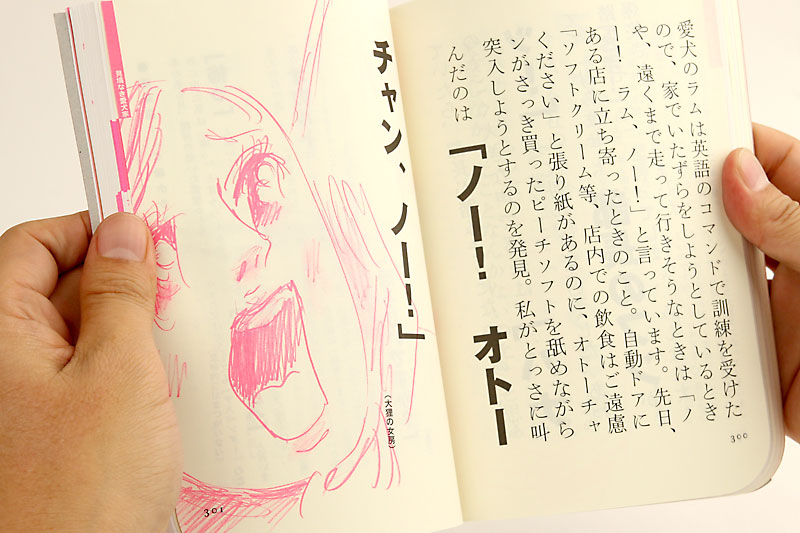 愛犬のラムは英語のコマンドで訓練を受けた
ので、家でいたずらをしようとしているとき
や、遠くまで走って行きそうなときは「ノ
ー！　ラム、ノー！」と言っています。先日、
ある店に立ち寄ったときのこと。自動ドアに
「ソフトクリーム等、店内での飲食はご遠慮
ください」と張り紙があるのに、オトーチャ
ンがさっき買ったピーチソフトを舐めながら
突入しようとするのを発見。私がとっさに叫
んだのは
「ノー！　オトー
300
チャン、ノー！」
（大狸の女房）
301